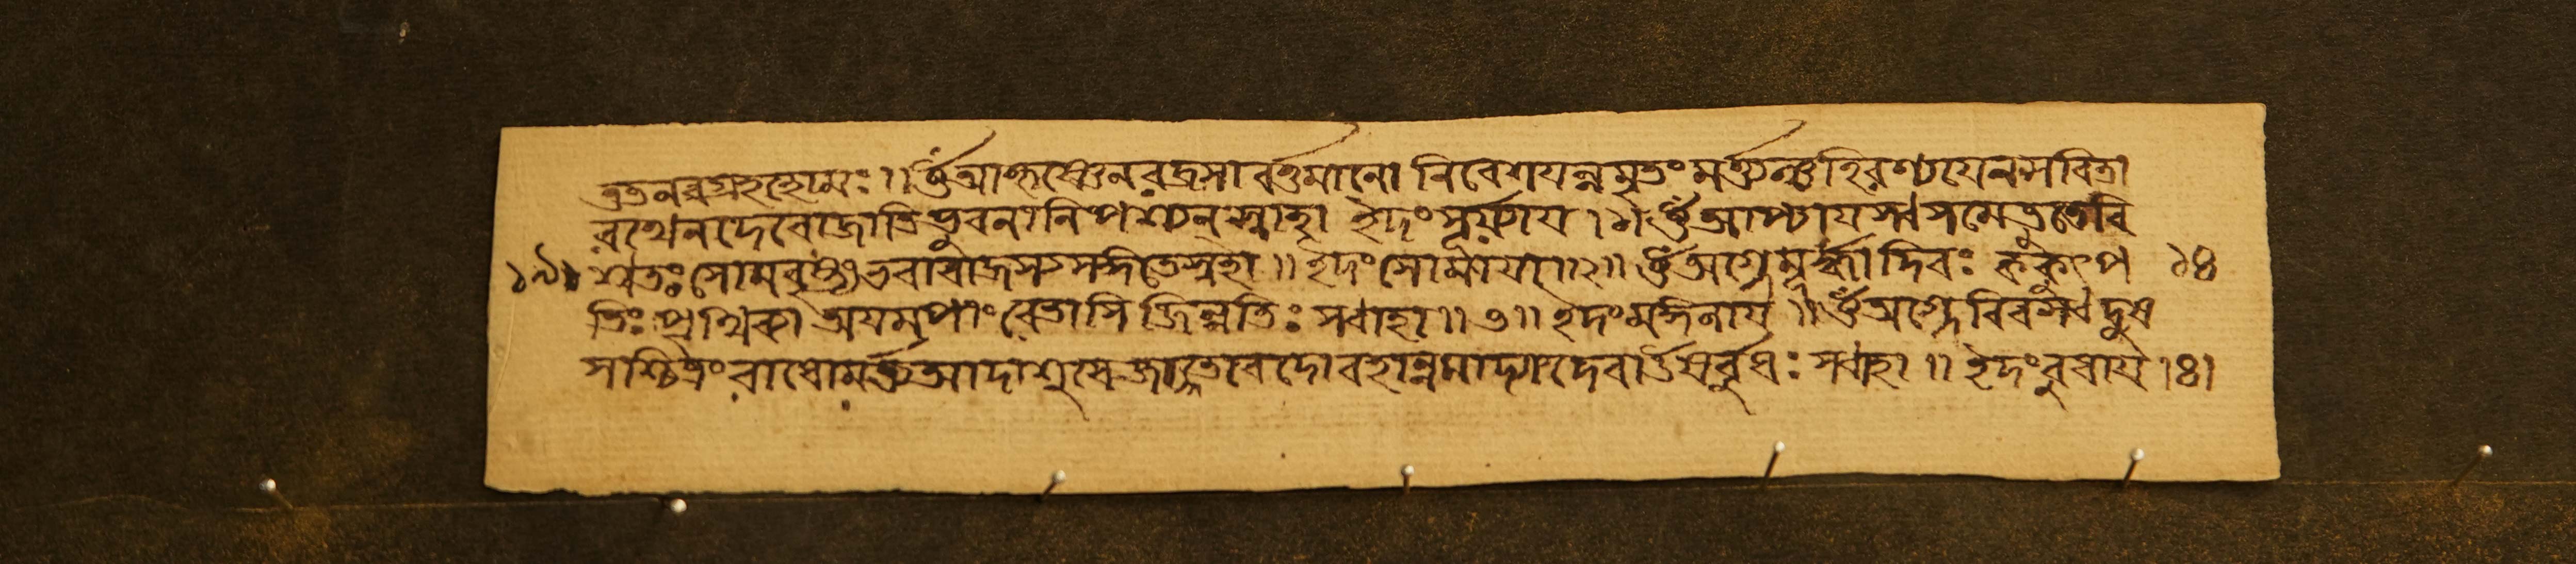 ততনবগ্রহহোমঃ ॥ ওঁ আকৃষ্ণেনরজসা বর্ত্তমানো নিবেশয়ন্নমৃতং মর্ত্ত্যঞ্চ হিরণ্যয়েনসবিতা
রথেনদেবোজাতি ভুবনানি পশ্যন্ স্বাহা ইদং সূর্য্যায় ।১। ওঁ আপ্যায়স্ব সমেতুতেবি
১৯। শ্বতঃ সোমবৃষ্ণ্যং ভবাবাজস্য সঙ্গতেস্বহা ॥ ইদং সোমায় ॥২॥ ওঁ অগ্নেমূর্দ্ধা দিবঃ ককুৎপ ১৪
তিঃ পৃথিব্যা অয়মপাং রেতাসি জিন্নতিঃ স্বাহা ॥৩॥ ইদং মঙ্গলায় ॥ ওঁ অগ্নে বিবস্বদুষ
সশ্চিত্রং রাধোমর্ত্ত্যআদাশুষে জাতবেদোবহাত্বমাদ্যাদেবাঁ উষর্বুধঃ স্বাহা ॥ ইদং বুধায় ।৪।